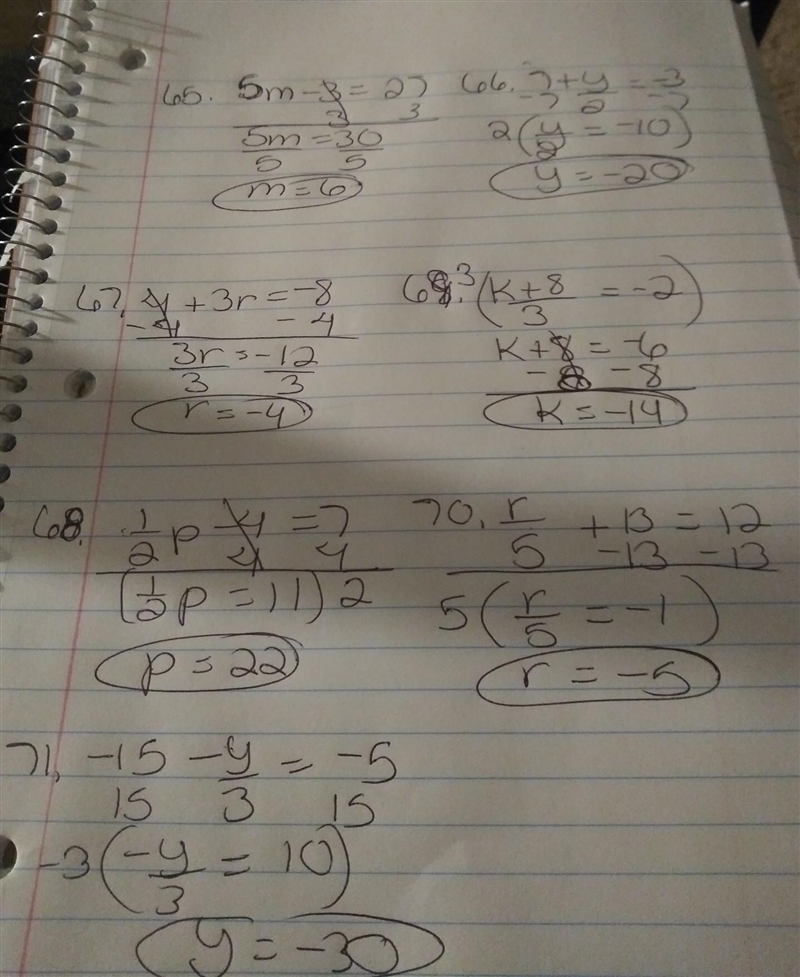 65. 5m - 3 = 27
3 3
5m = 30
5 5
m = 6
66. 7 + y/2 = -3
-7 -7
2(y/2 = -10)
y = -20
67. 4 + 3r = -8
-4 -4
3r = -12
3 3
r = -4
69. 3((k+8)/3 = -2)
k + 8 = -6
-8 -8
k = -14
68. 1/2 p - 4 = 7
4 4
(1/2 p = 11) 2
p = 22
70. r/5 + 13 = 12
-13 -13
5(r/5 = -1)
r = -5
71. -15 - y/3 = -5
15 15
-3(-y/3 = 10)
y = -30